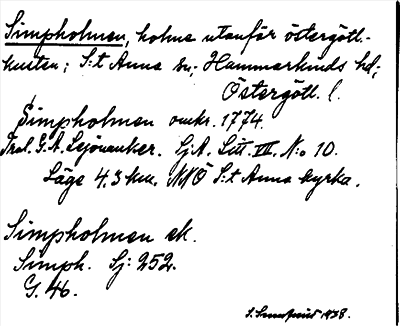 Simpholmen, holme utanför östergötl.-
kusten; S:t Anna sn; Hammarkinds hd;
Östergötl. l.
Simpholmen omkr. 1774.
G. A. Lejonanker. Sj.A. Litt. VII. N:o 10.
Läge 4,3 km. NNÖ S:t Anna kyrka.
Simpholmen ek.
Simph. Sj: 252.
G. 46.
1938.